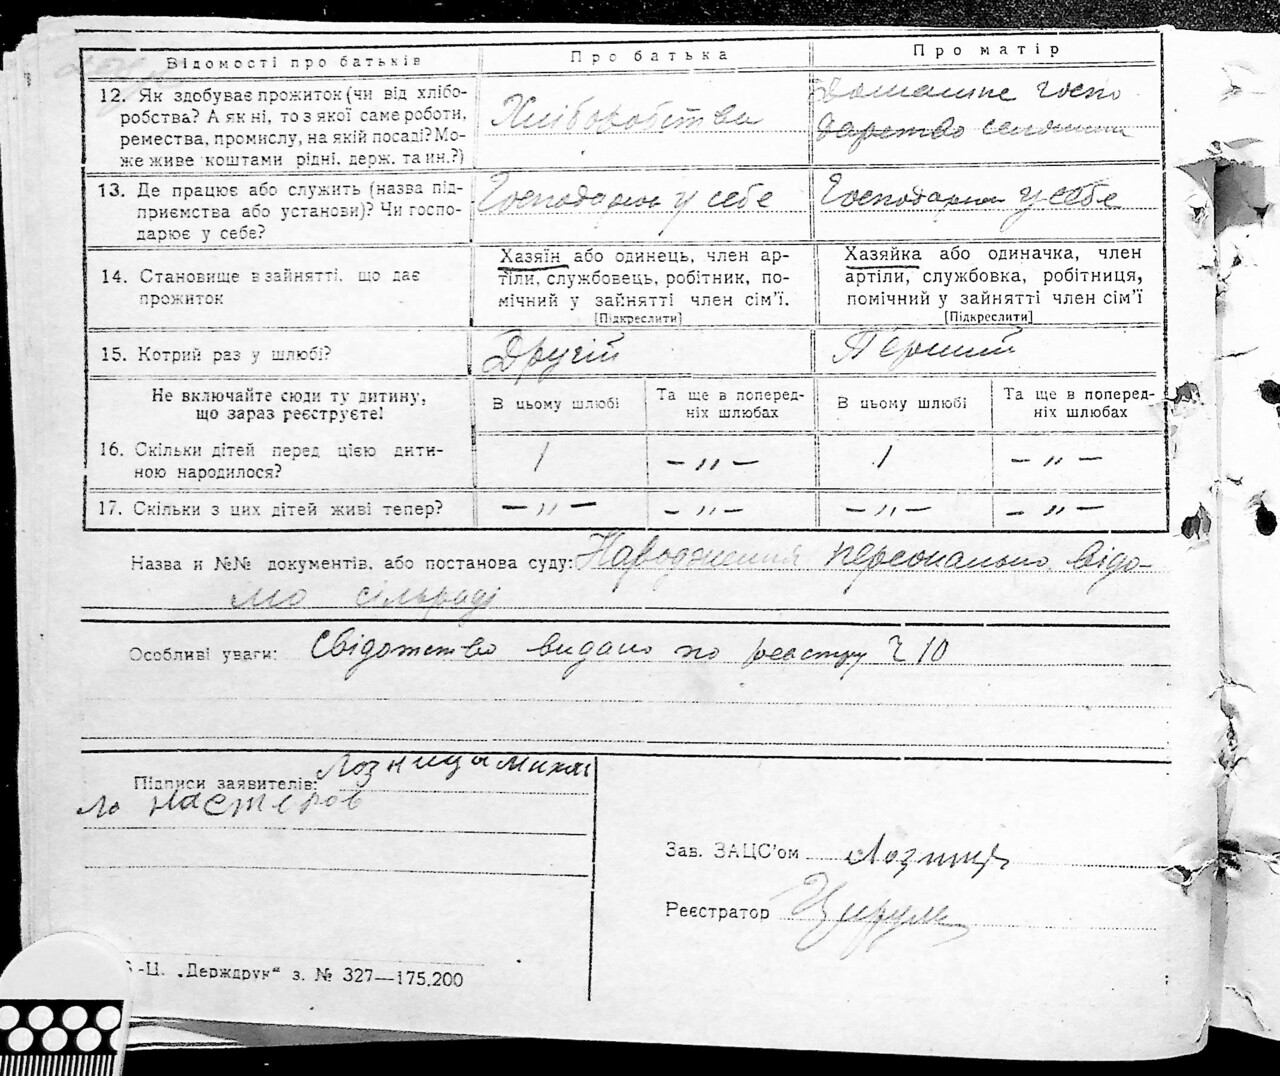 Відомості про батьків Про батька Про матір
12. Як здобуває прожиток (чи від хлібо-
робства? А як ні, то з якої саме роботи,
ремества, промислу, на якій посаді? Мо-
же живе коштами рідні, держ. та ин.?)
Хліборобства
Домашнє госпо
дарство
13. Де працює або служить (назва під-
приємства або установи)? Чи госпо-
дарює у себе?
Господарює у себе
Господарює у себе
14. Становище в зайнятті, що дає
прожиток
Хазяїн або одинець, член ар-
тіли, службовець, робітник, по-
мічний у зайнятті член сім'ї.
[Підкреслити]
Хазяйка або одиначка, член
артіли, службовка, робітниця,
помічний у зайнятті член сім'ї
[Підкреслити]
15. Котрий раз у шлюбі? Другій Перший
Не включайте сюди ту дитину,
що зараз реєструєте!
В цьому шлюбі
Та ще в поперед-
ніх шлюбах
В цьому шлюбі
Та ще в поперед-
ніх шлюбах
16. Скільки дітей перед цією дити-
ною народилося?
1 – " – 1 – " –
17. Скільки з цих дітей живі тепер? – " – – " – – " – – " –
Назва и №№ документів, або постанова суду: Народження персонально відо-
мо сільраді
Особливі уваги: Свідотство видано по реестру Ч 10
Підписи заявителів: Лозниця Михай
ло Нестеров
Зав. ЗАЦС'ом Лозниця
Реєстратор
-Ц. „Держдрук“ з. № 327—175.200